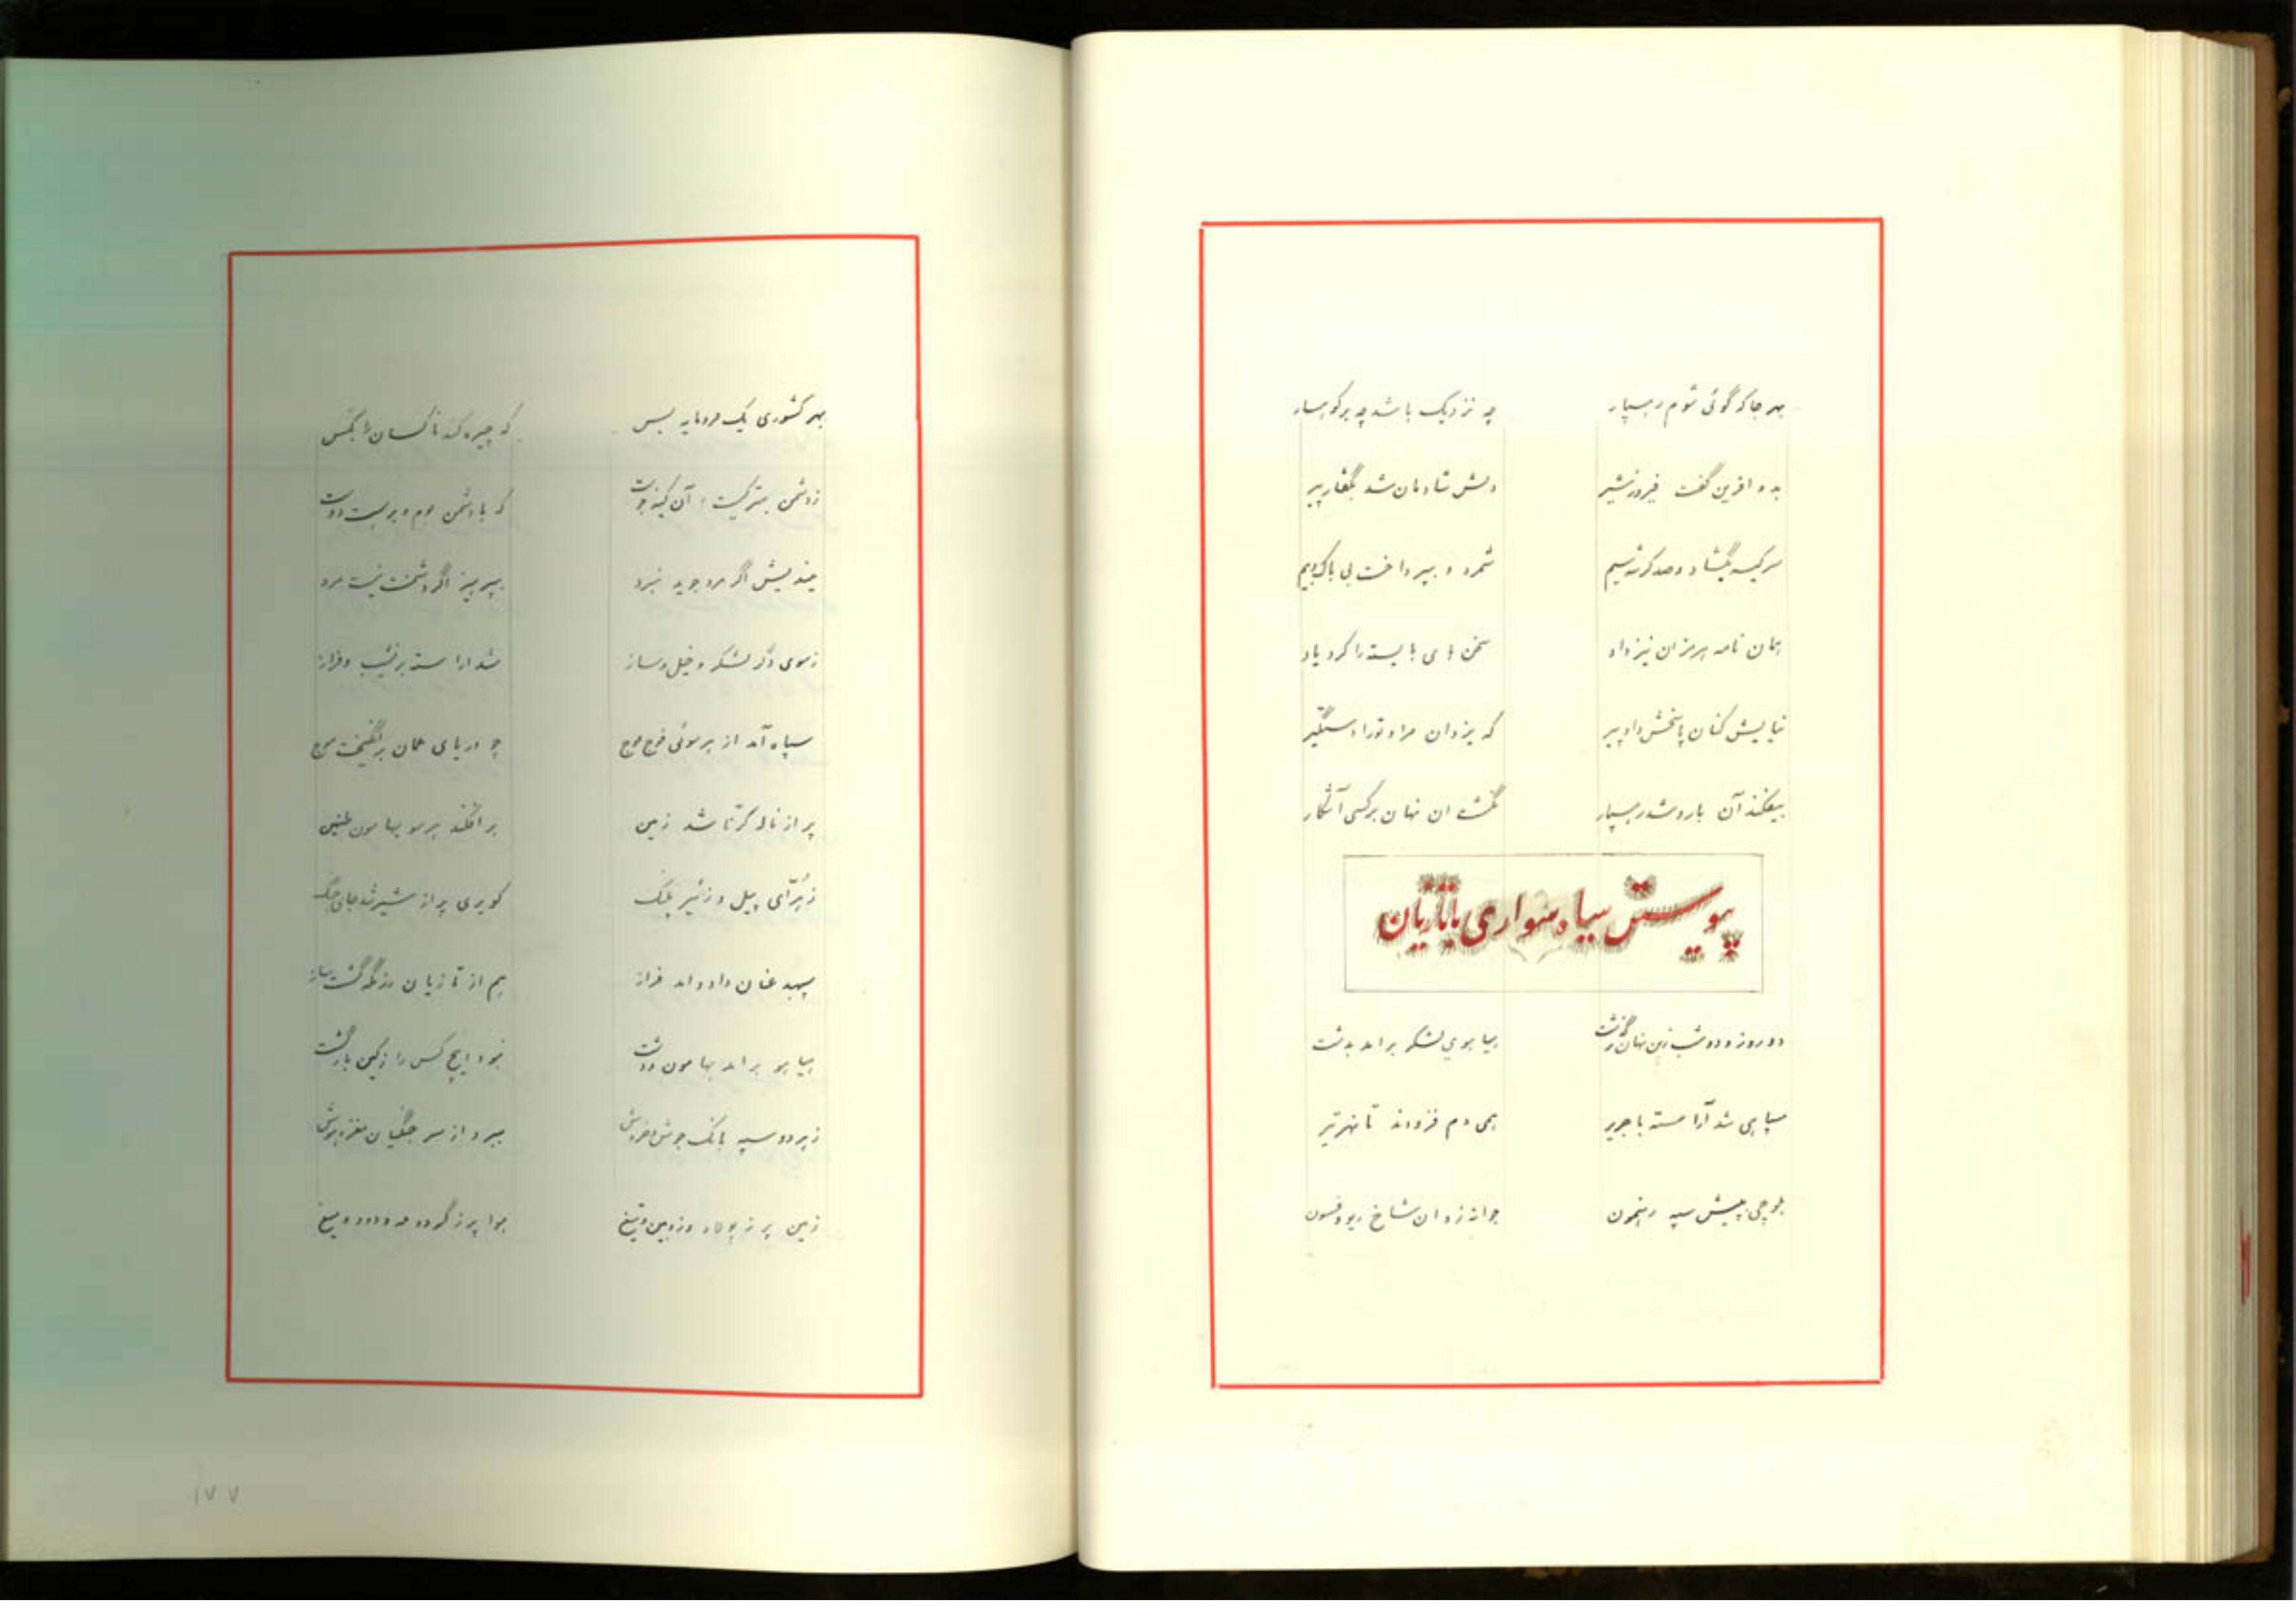 بهر جا که گوئی شوم رهسپار چه نزدیک باشد چه بر کوهسار
بدو افرین گفت فیروز شیر دلش شادمان شد بگفتار پیر
سر کیسه بگشاد و صد کرشه سیم شمرد و بپرداخت بی باک و بیم
همان نامه هرمزان نیز داد سخن های بایسته را کرد یاد
نیایش کنان پاسخش داد پیر که یزدان مرا و تو را دستگیر
بیفکند آن بار و شد رهسپار نگشت ان نهان بر کسی آشکار
پیوستن سیاه سواری با تازیان
دو روز و دو شب زین نهان گذشت هیاهوی لشکر برامد بدشت
سپاهی شد آراسته با جریر همی دم فزودند تا نهر تیر
پیش سپه رهنمون ریو و فسون
بهر کشوری یک فرومایه بس که چیره کند ناکسان را بکس
ز دشمن بتر کیست آن کینه جوست که با دشمن بوم و بر هست دوست
میندیش اگر مرد جوید نبرد بپرهیز اگر دشمنت نیست مرد
ز سوی دگر لشکر و خیل و ساز شد اراسته بر نشیب و فراز
سپاه آمد از هر سوئی فوج فوج چو دریای عمان برانگیخت موج
پر از ناله کرنا شد زمین بر افکند هر سو بهامون طنین
پیل و ز شیر پلنگ کویری پر از شیر شد جای جنگ
سپهبد عنان داد و امد فراز هم از تازیان رزمگه گشت ساز
هیاهو برامد بهامون و دشت نبود ایچ کس را ز کین بازگشت
ز هر دو سپه بانگ جوش و خروش ببرد از سر جنگیان مغز و هوش
زمین پر ز پولاد و زوبین و تیغ هوا پر ز گرد و مه و دود و میغ
۱۷۷